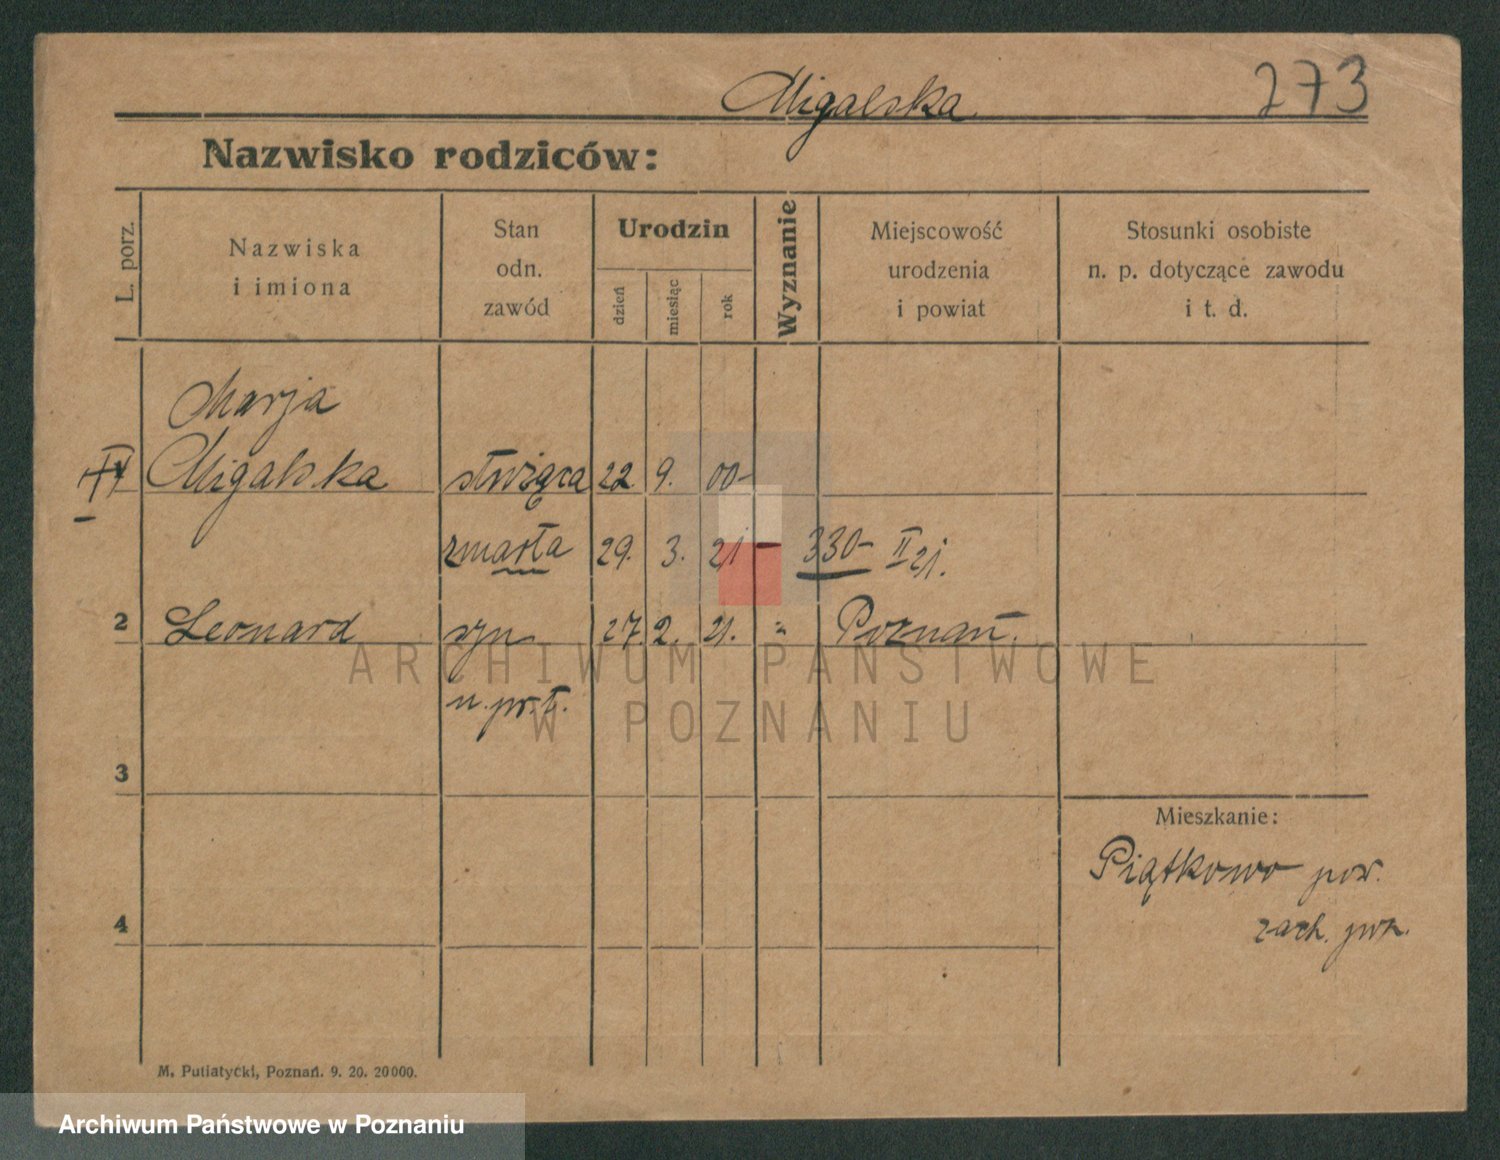 Migalska
273
Nazwisko rodziców:
L. porz.
Nazwiska
i imiona
Stan
odn.
zawód
Urodzin
dzień
miesiąc
rok
Wyznanie
Miejscowość
urodzenia
i powiat
Stosunki osobiste
n. p. dotyczące zawodu
i t. d.
Marja
Migalska służąca 22 9. 00-
zmarła 29. 3. 21 - 330- II 21.
2 Leonard syn 27. 2. 21. Poznań.
ARCHIWUM PAŃSTWOWE
W POZNANIU
3
Mieszkanie:
Piątkowo pow.
zach. pozn.
4
M. Putiatycki, Poznań. 9. 20. 20000.
Archiwum Państwowe w Poznaniu